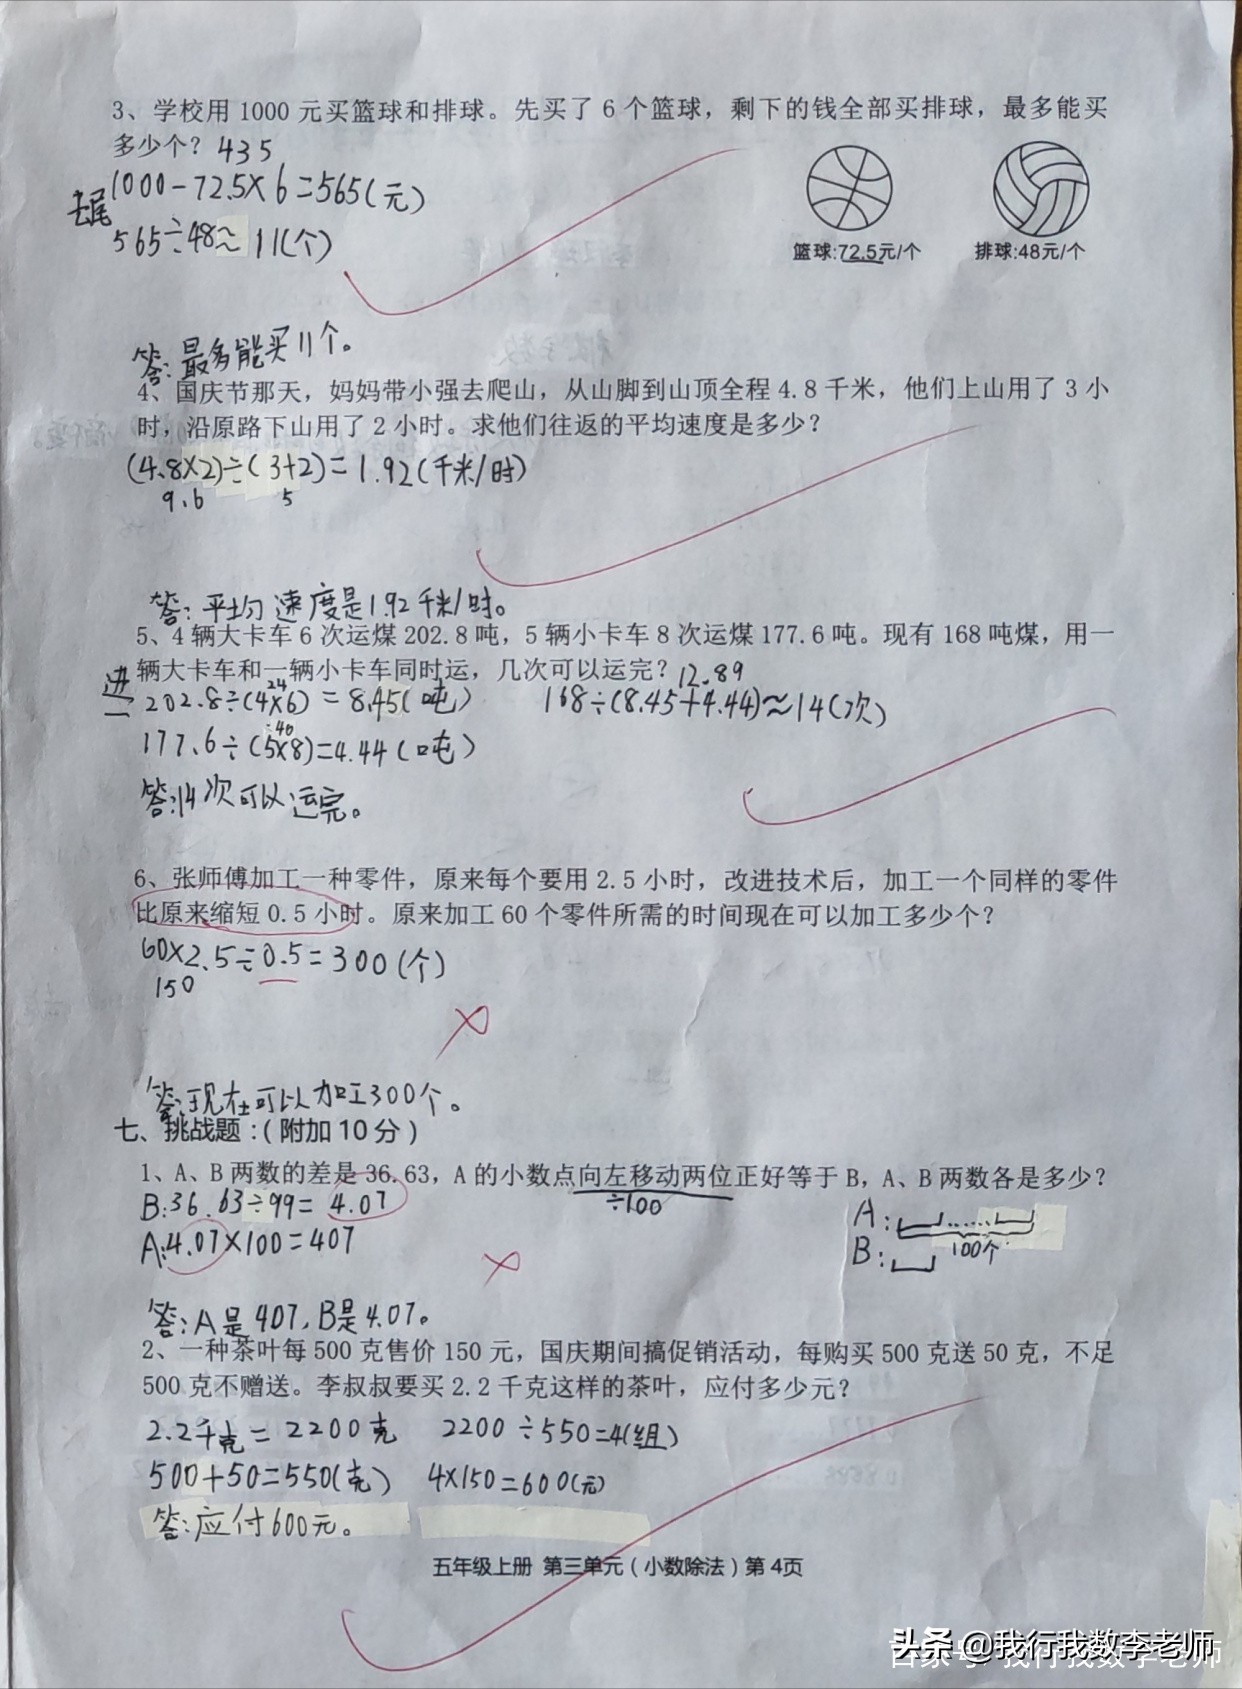 3、学校用 1000 元买篮球和排球。先买了 6 个篮球，剩下的钱全部买排球，最多能买
多少个？ 435
去尾 1000-72.5×6=565(元)
565÷48≈11(个)
篮球:72.5元/个 排球:48元/个
答:最多能买11个。
4、国庆节那天，妈妈带小强去爬山，从山脚到山顶全程 4.8 千米，他们上山用了 3 小
时，沿原路下山用了 2 小时。求他们往返的平均速度是多少？
(4.8×2)÷(3+2)=1.92(千米/时)
9.6 5
答:平均速度是1.92千米/时。
5、4 辆大卡车 6 次运煤 202.8 吨，5 辆小卡车 8 次运煤 177.6 吨。现有 168 吨煤，用一
辆大卡车和一辆小卡车同时运，几次可以运完？ 12.89
进一 24
202.8÷(4×6)=8.45(吨) 168÷(8.45+4.44)≈14(次)
40
177.6÷(5×8)=4.44(吨)
答:14次可以运完。
6、张师傅加工一种零件，原来每个要用 2.5 小时，改进技术后，加工一个同样的零件
比原来缩短 0.5 小时。原来加工 60 个零件所需的时间现在可以加工多少个？
60×2.5÷0.5=300(个)
150
答:现在可以加工300个。
七、挑战题：(附加 10 分)
1、A、B 两数的差是 36.63，A 的小数点向左移动两位正好等于 B，A、B 两数各是多少？
÷100
B:36.63÷99=4.07
A:4.07×100=407
A:
B: 100个
答:A是407,B是4.07。
2、一种茶叶每 500 克售价 150 元，国庆期间搞促销活动，每购买 500 克送 50 克，不足
500 克不赠送。李叔叔要买 2.2 千克这样的茶叶，应付多少元？
2.2千克=2200克 2200÷550=4(组)
500+50=550(克) 4×150=600(元)
答:应付600元。
五年级上册 第三单元（小数除法）第 4页
头条 @我行我数李老师
百家号 我行我数李老师